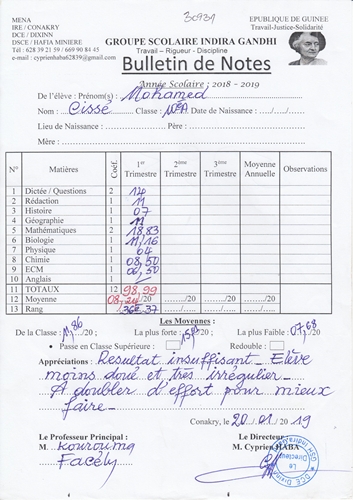 30931
MENA
IRE / CONAKRY
DCE / DIXINN
DSCE / HAFIA MINIERE
Tél : 628 39 21 59 / 669 90 84 45
e-mail : cyprienhaba62839/@gmail.com
EPUBLIQUE DE GUINEE
Travail-Justice-Solidarité
GROUPE SCOLAIRE INDIRA GANDHI
Travail – Rigueur - Discipline
Bulletin de Notes
Année Scolaire : 2018 - 2019
De l'élève : Prénom(s) : Mohamed
Nom : Cissé Classe : Date de Naissance : ..../..../....
Lieu de Naissance : Père :
Mère :
N° Matières Coéf. 1er Trimestre 2ème Trimestre 3ème Trimestre Moyenne Annuelle Observations
1 Dictée / Questions 2 14
2 Rédaction 1 11
3 Histoire 1 07
4 Géographie 1 11
5 Mathématiques 2 18,83
6 Biologie 1 11,16
7 Physique 1 04
8 Chimie 1 08,50
9 ECM 1 06,50
10 Anglais 1 /
11 TOTAUX 12 98,99
12 Moyenne 08,24/20 ......./20 ......./20 ......./20
13 Rang 36è/37
Les Moyennes :
De la Classe : 11,86/20 ; La plus forte : /20 ; La plus Faible : 07,68/20
• Passe en Classe Supérieure : Redouble :
Appréciations : Résultat insuffisant_ Elève
moins doué et très irrégulier_
A doubler d'effort pour mieux
faire_
Conakry, le 20/01/2019
Le Professeur Principal : Le Directeur
M. Kourouma M. Cyprien HABA
Facély